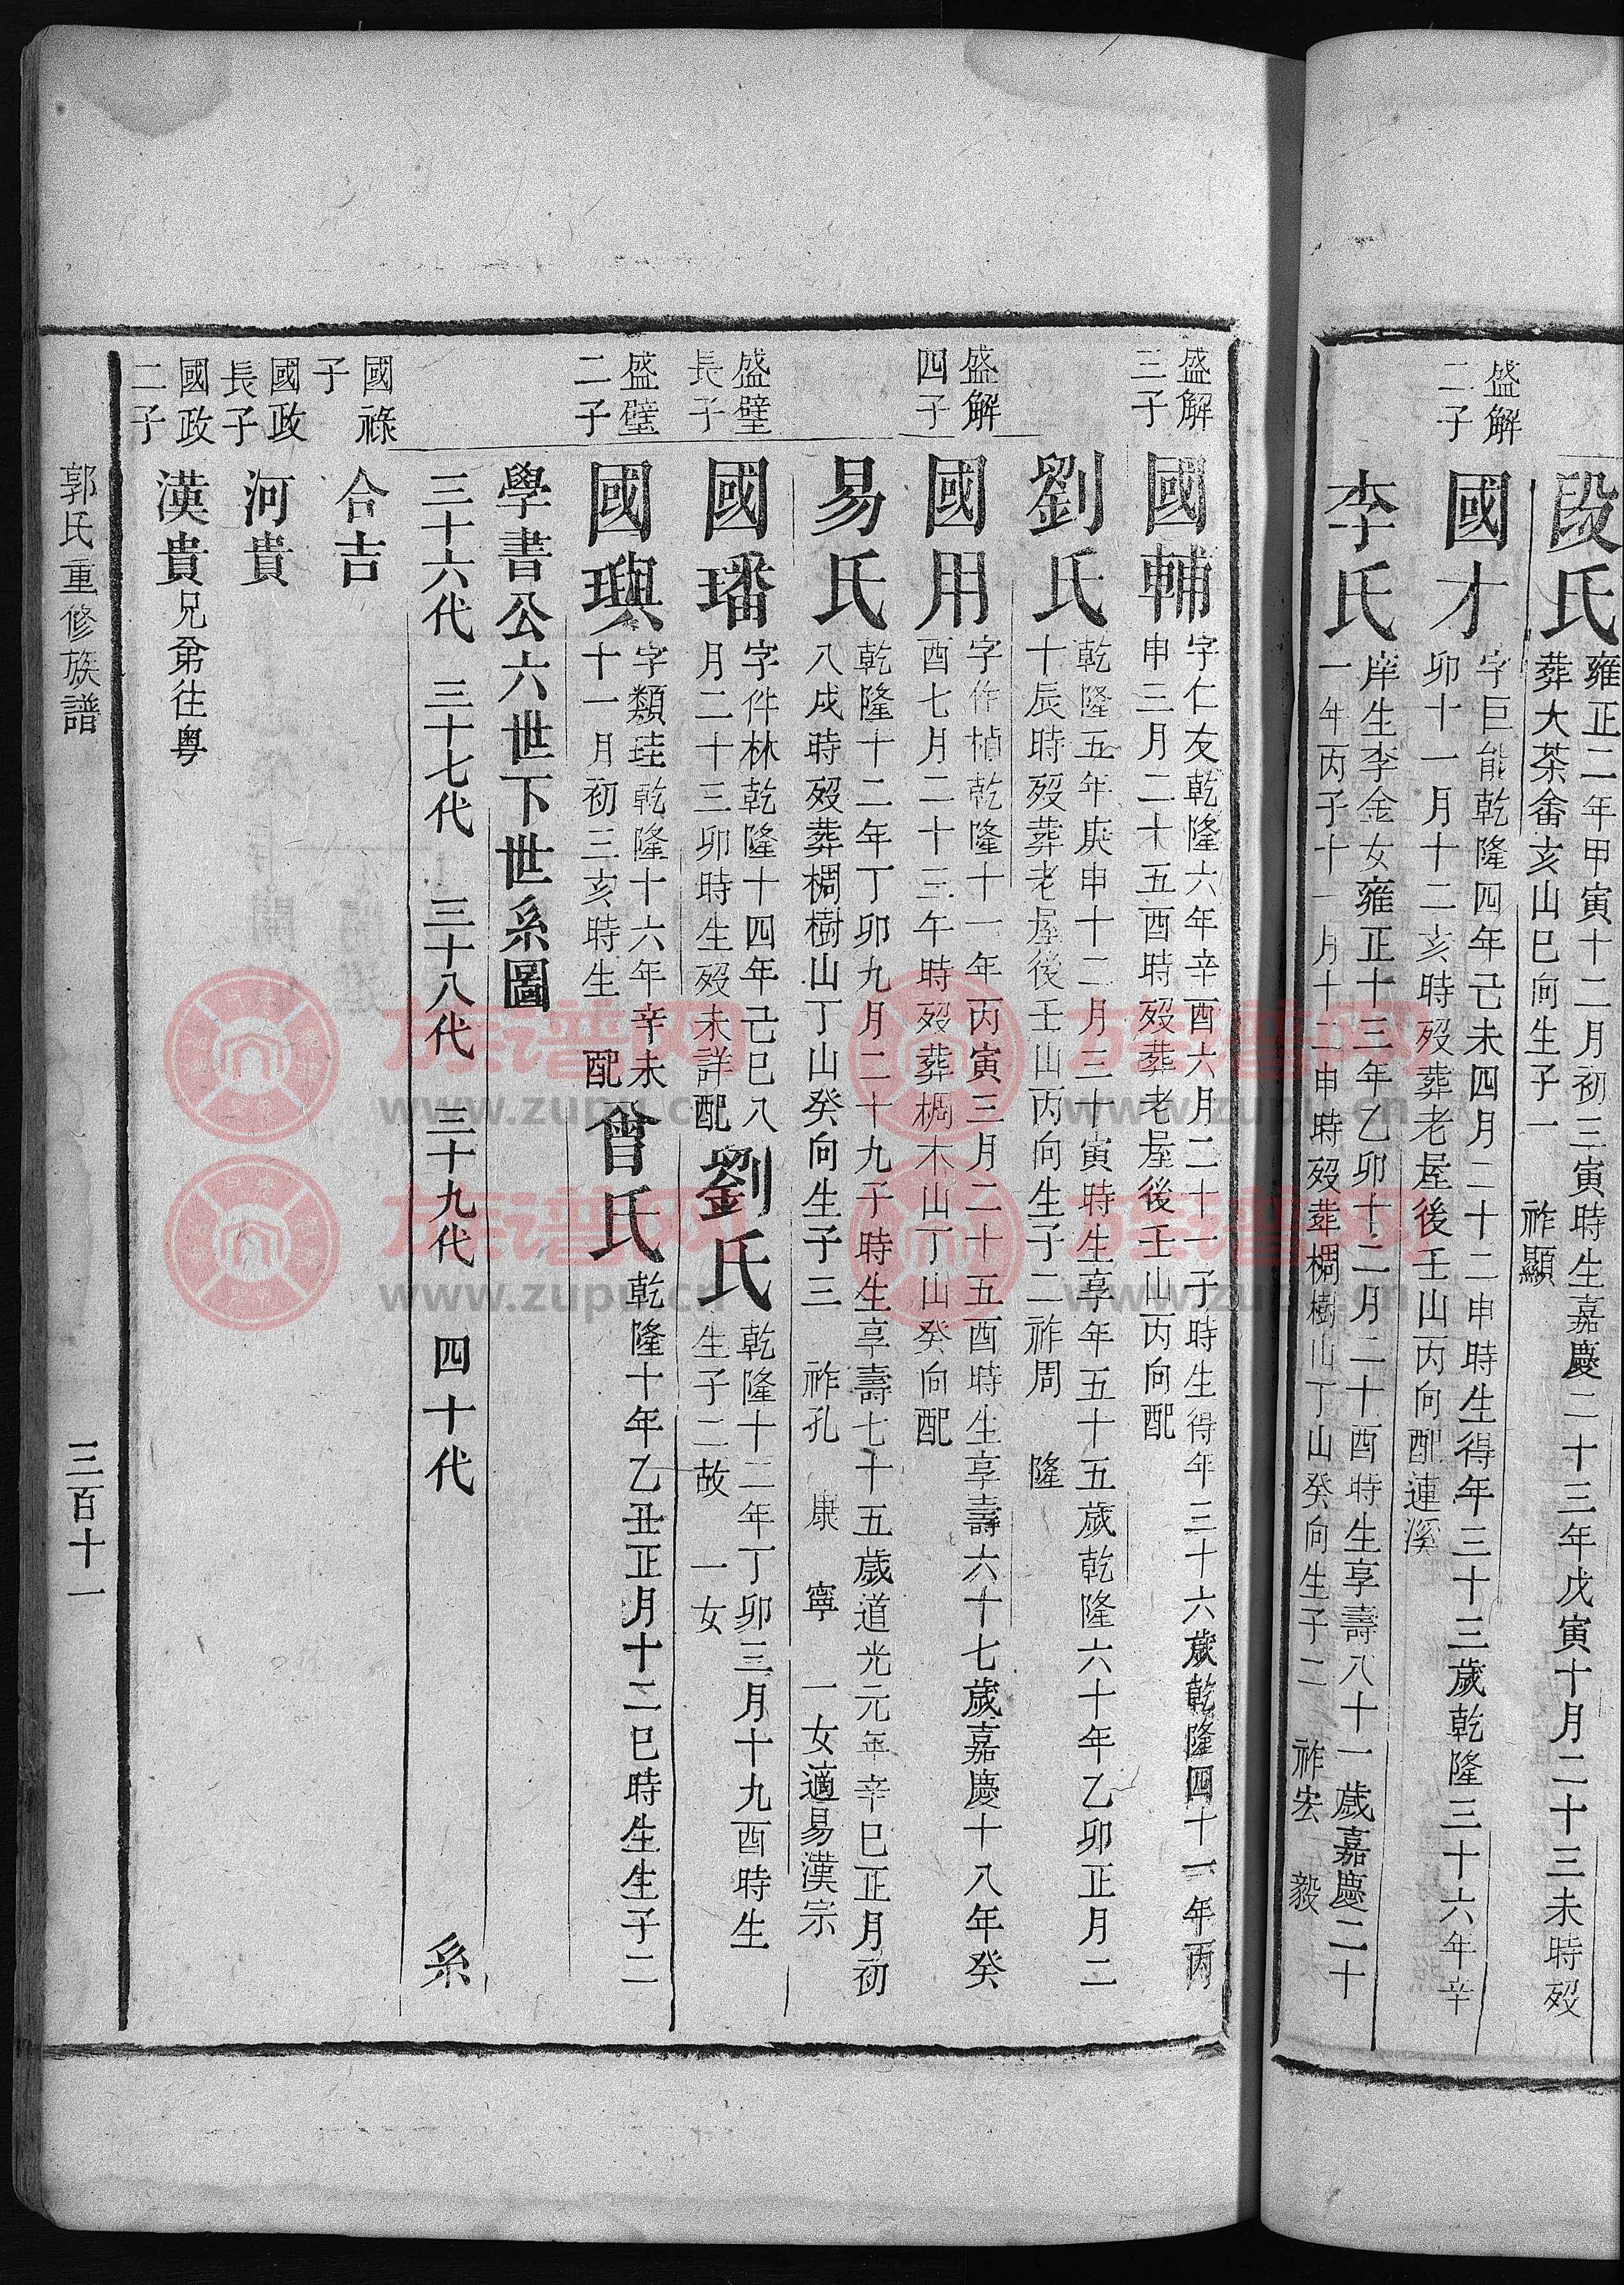 段氏
雍正二年甲寅十二月初三寅時生嘉慶二十三年戊寅十月二十三未時歿
葬大茶畲亥山巳向生子一 祚顯
盛解
二子
國才
字巨能乾隆四年己未四月二十二申時生得年三十三歲乾隆三十六年辛
卯十一月十二亥時歿葬老屋後壬山丙向配連溪
李氏
岸生李金女雍正十三年乙卯十二月二十酉時生享壽八十一歲嘉慶二十
一年丙子十一月十二申時歿葬椆樹山丁山癸向生子二 祚宏 毅
盛解
三子
國輔
字仁友乾隆六年辛酉六月二十一子時生得年三十六歲乾隆四十一年丙
申三月二十五酉時歿葬老屋後壬山丙向配
劉氏
乾隆五年庚申十二月三十寅時生享年五十五歲乾隆六十年乙卯正月二
十辰時歿葬老屋後壬山丙向生子二祚周 隆
盛解
四子
國用
字作楨乾隆十一年丙寅三月二十五酉時生享壽六十七歲嘉慶十八年癸
酉七月二十三午時歿葬椆木山丁山癸向配
易氏
乾隆十二年丁卯九月二十九子時生享壽七十五歲道光元年辛巳正月初
八戌時歿葬椆樹山丁山癸向生子三 祚孔 康 寧 一女適易漢宗
盛璧
長子
國璠
字件林乾隆十四年己巳八
月二十三卯時生歿未詳配
劉氏
乾隆十二年丁卯三月十九酉時生
生子二故 一女
盛璧
二子
國璵
字類珪乾隆十六年辛未
十一月初三亥時生 配
曾氏
乾隆十年乙丑正月十二巳時生生子二
學書公六世下世系圖
三十六代 三十七代 三十八代 三十九代 四十代 系
國祿
子
合吉
國政
長子
河貴
國政
二子
漢貴兄弟往粤
郭氏重修族譜 三百十一
族谱网
www.zupu.cn
族谱网
www.zupu.cn
族谱网
www.zupu.cn
族谱网
www.zupu.cn